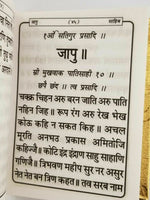 जापु ( ४५ ) साहिब
१ਓं सतिगुर प्रसादि ॥
जापु ॥
स्री मुखवाक पातिसाही १० ॥
छपै छंद ॥ त्व प्रसादि ॥
चक्क्र चिहन अरु बरन जाति अरु पाति
नहिन जिह ॥ रूप रंग अरु रेख भेख
कोऊ कहि न सकत किह ॥ अचल
मूरति अनभउ प्रकास अमितोजि
कहिज्जै ॥ कोटि इंद्र इंद्राण साहु साहाणि
गणिज्जै ॥ त्रिभवण महीप सुर नर असुर
नेत नेत बन त्रिण कहत ॥ तव सरब नाम